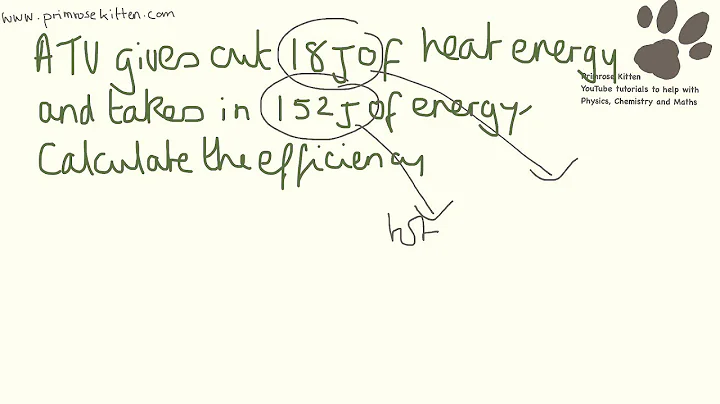 www.primrosekitten.com
A TV gives out 18J of heat energy
Primrose Kitten
YouTube tutorials to help with
Physics, Chemistry and Maths
and takes in 152J of energy.
Calculate the efficiency